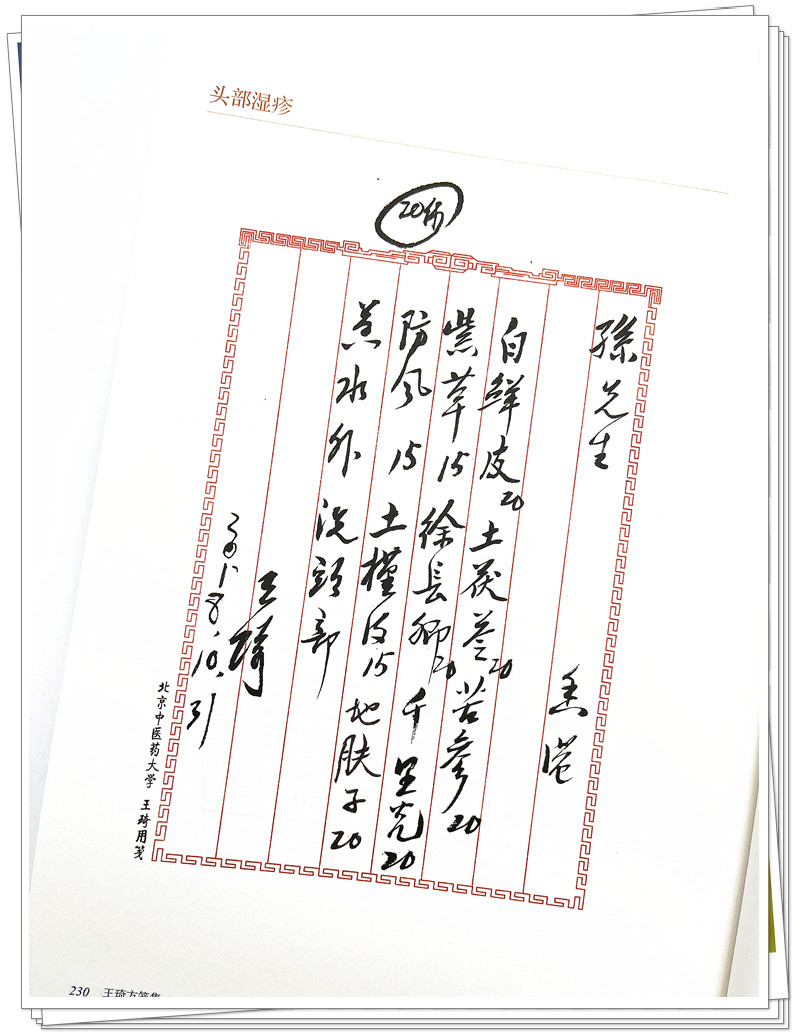 头部湿疹
20付
孫先生 香港
白鲜皮20 土茯苓20 苦参20
紫草15 徐長卿20 千里光20
防风15 土槿皮15 地肤子20
煎水外洗頭部
王琦
2018.10.31
北京中医药大学 王琦用笺
230 王琦方笺集